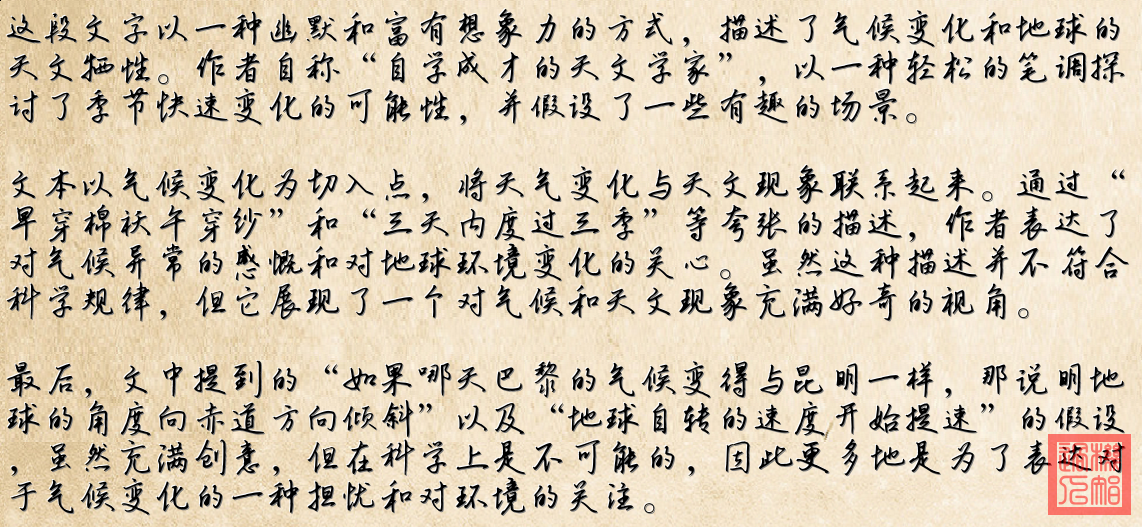 这段文字以一种幽默和富有想象力的方式，描述了气候变化和地球的
天文牺性。作者自称“自学成才的天文学家”，以一种轻松的笔调探
讨了季节快速变化的可能性，并假设了一些有趣的场景。
文本以气候变化为切入点，将天气变化与天文现象联系起来。通过“
早穿棉袄午穿纱”和“三天内度过三季”等夸张的描述，作者表达了
对气候异常的感慨和对地球环境变化的关心。虽然这种描述并不符合
科学规律，但它展现了一个对气候和天文现象充满好奇的视角。
最后，文中提到的“如果哪天巴黎的气候变得与昆明一样，那说明地
球的角度向赤道方向倾斜”以及“地球自转的速度开始提速”的假设
，虽然充满创意，但在科学上是不可能的，因此更多地是为了表达对
于气候变化的一种担忧和对环境的关注。